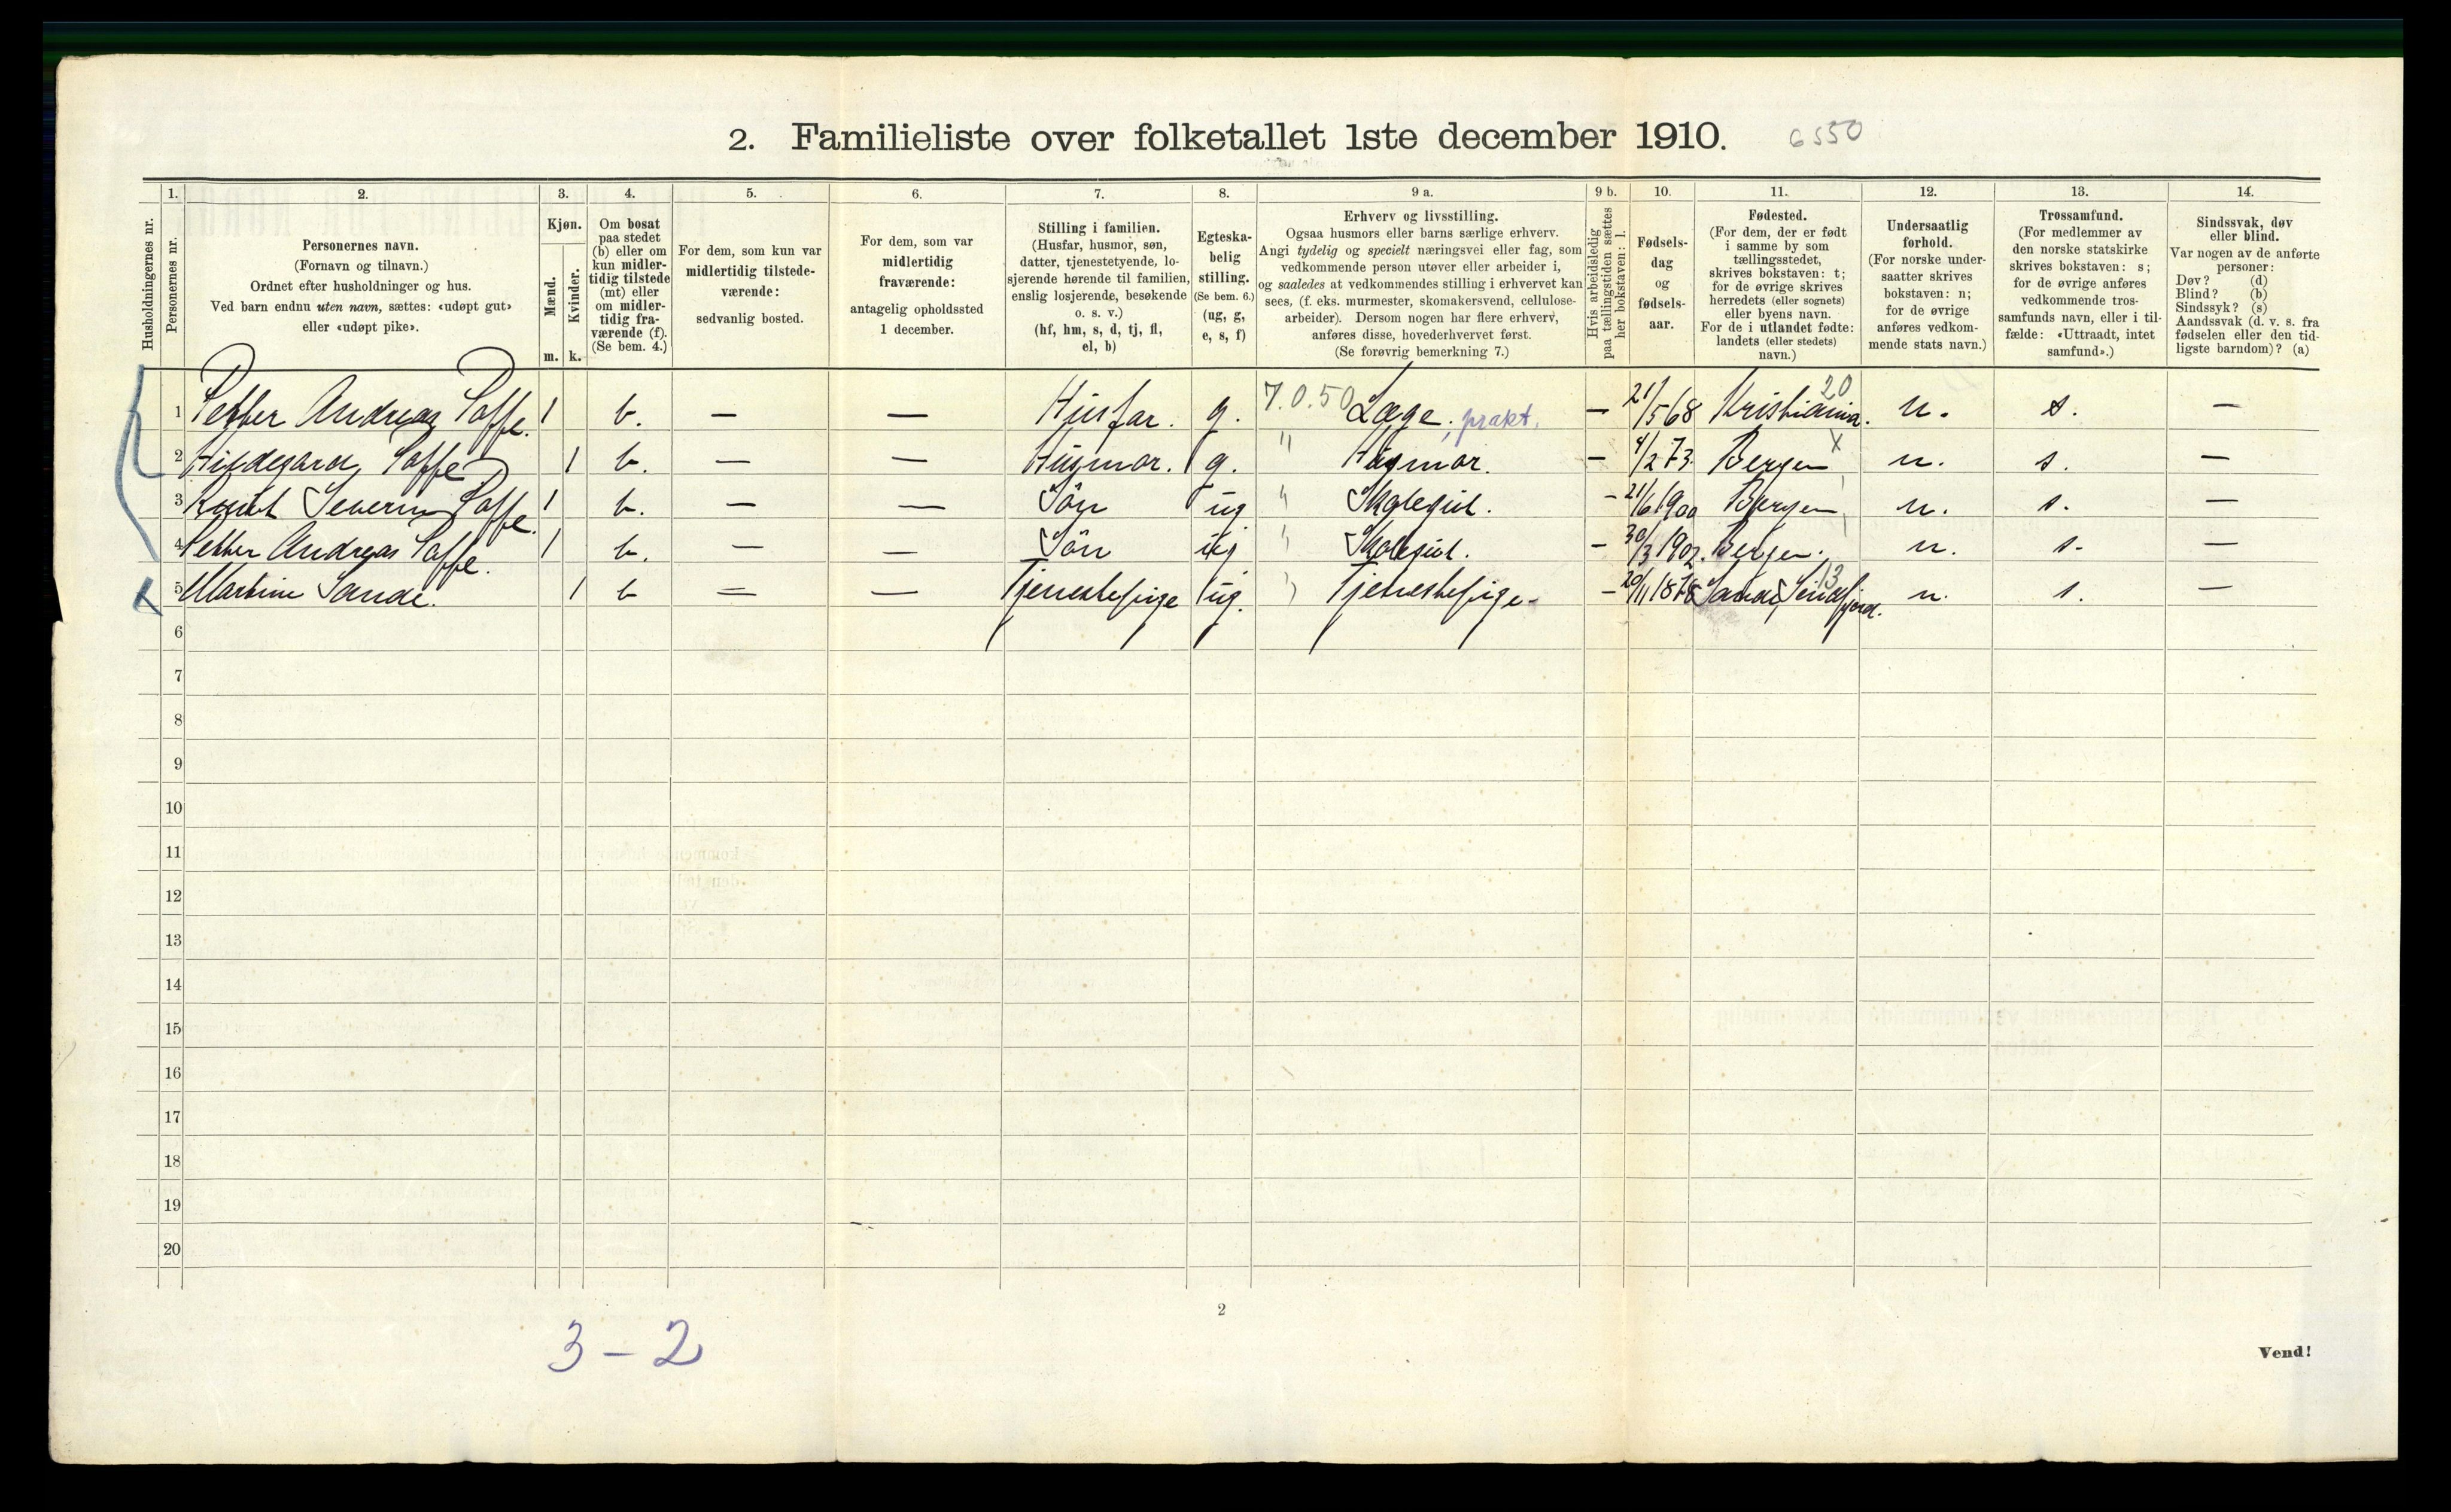 2. Familieliste over folketallet 1ste december 1910. 6550
Husholdningernes nr.
1.
Personernes nr.
2.
Personernes navn.
(Fornavn og tilnavn.)
Ordnet efter husholdninger og hus.
Ved barn endnu uten navn, sættes: «udøpt gut»
eller «udøpt pike».
3.
Kjøn.
Mænd.
Kvinder.
m. k.
4.
Om bosat
paa stedet
(b) eller om
kun midler-
tidig tilstede
(mt) eller
om midler-
tidig fra-
værende (f).
(Se bem. 4.)
5.
For dem, som kun var
midlertidig tilstede-
værende:
sedvanlig bosted.
6.
For dem, som var
midlertidig
fraværende:
antagelig opholdssted
1 december.
7.
Stilling i familien.
(Husfar, husmor, søn,
datter, tjenestetyende, lo-
sjerende hørende til familien,
enslig losjerende, besøkende
o. s. v.)
(hf, hm, s, d, tj, fl,
el, b)
8.
Egteska-
belig
stilling.
(Se bem. 6.)
(ug, g,
e, s, f)
9 a.
Erhverv og livsstilling.
Ogsaa husmors eller barns særlige erhverv.
Angi tydelig og specielt næringsvei eller fag, som
vedkommende person utøver eller arbeider i,
og saaledes at vedkommendes stilling i erhvervet kan
sees, (f. eks. murmester, skomakersvend, cellulose-
arbeider). Dersom nogen har flere erhverv,
anføres disse, hovederhvervet først.
(Se forøvrig bemerkning 7.)
9 b.
Hvis arbeidsledig
paa tællingstiden sættes
her bokstaven: l.
10.
Fødsels-
dag
og
fødsels-
aar.
11.
Fødested.
(For dem, der er født
i samme by som
tællingsstedet,
skrives bokstaven: t;
for de øvrige skrives
herredets (eller sognets)
eller byens navn.
For de i utlandet fødte:
landets (eller stedets)
navn.)
12.
Undersaatlig
forhold.
(For norske under-
saatter skrives
bokstaven: n;
for de øvrige
anføres vedkom-
mende stats navn.)
13.
Trossamfund.
(For medlemmer av
den norske statskirke
skrives bokstaven: s;
for de øvrige anføres
vedkommende tros-
samfunds navn, eller i til-
fælde: «Uttraadt, intet
samfund».)
14.
Sindssvak, døv
eller blind.
Var nogen av de anførte
personer:
Døv? (d)
Blind? (b)
Sindssyk? (s)
Aandssvak (d. v. s. fra
fødselen eller den tid-
ligste barndom)? (a)
1 Petter Andreas Poffe. 1 b. — — Husfar. g. 7.0.50 Læge, prakt. — 21/5 68 Kristiania. 20 n. s. —
2 Hildegard Poffe 1 b. — — Husmor. g. " Husmor. — 4/2 73. Bergen x n. s. —
3 Knut Severin Poffe. 1 b. — — Sön ug " Skolegut. - 21/6 1900 Bergen n. s. —
4 Petter Andreas Poffe. 1 b. — — Sön ug " Skolegut. - 30/3 1902. Bergen. n. s. —
5 Martine Sande. 1 b — — Tjenestepige ug. " Tjenestepige - 20/11 1878 Sande, Söndfjord. 13 n. s. —
6
7
8
9
10
11
12
13
14
15
16
17
18
19
20
2
3 - 2
Vend!